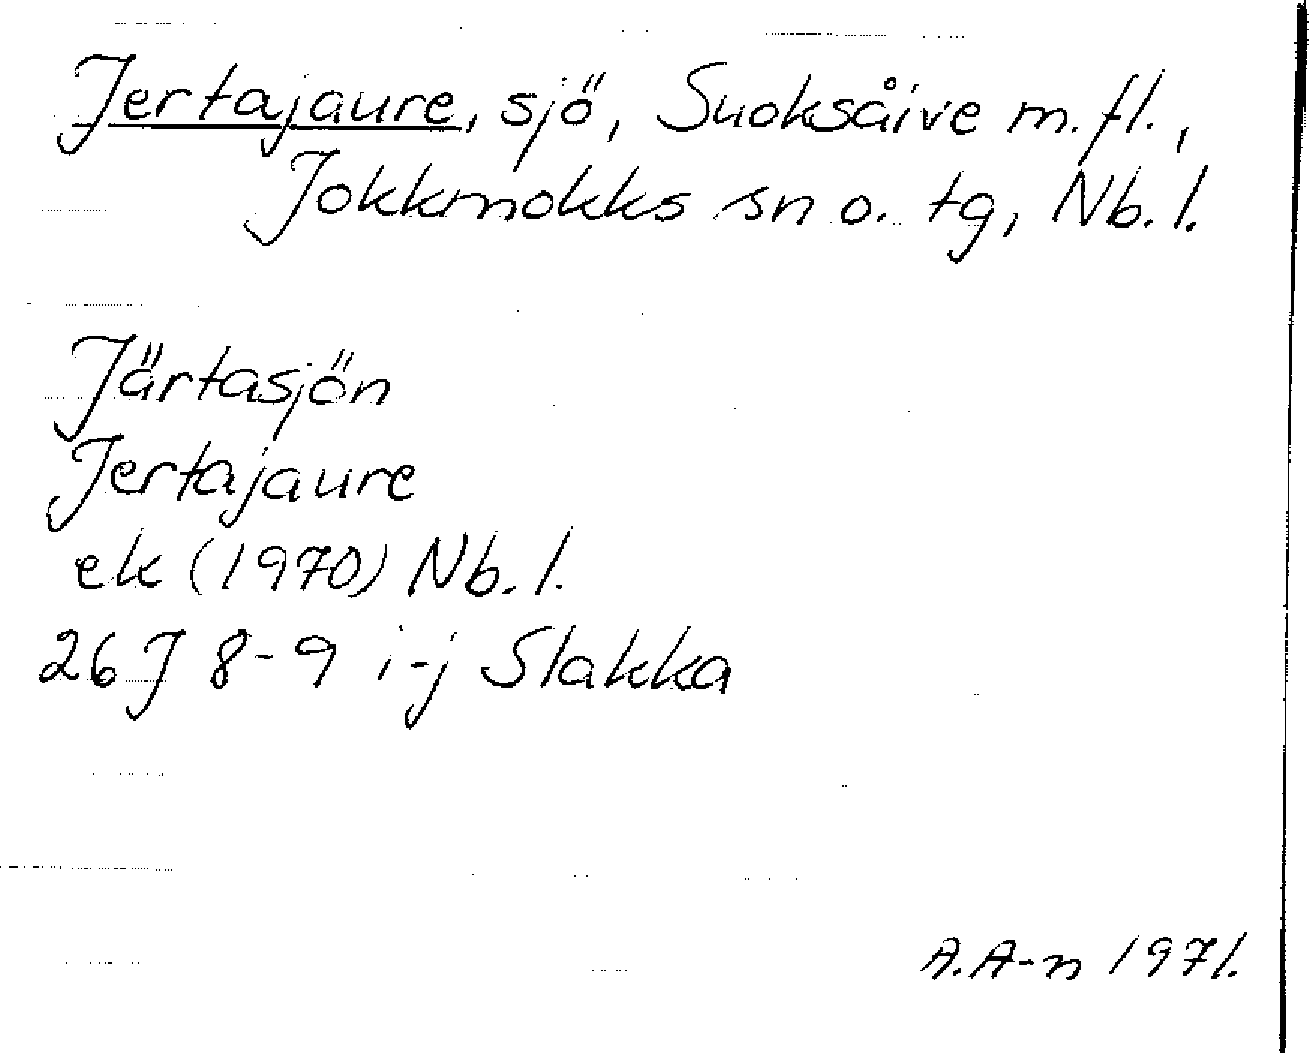 Jertajaure, sjö, Suoksåive m.fl.,
Jokkmokks sn o. tg, Nb.l.
Järtasjön
Jertajaure
ek (1970) Nb.l.
26 J 8-9 i-j Slakka
A.A-n 1971.